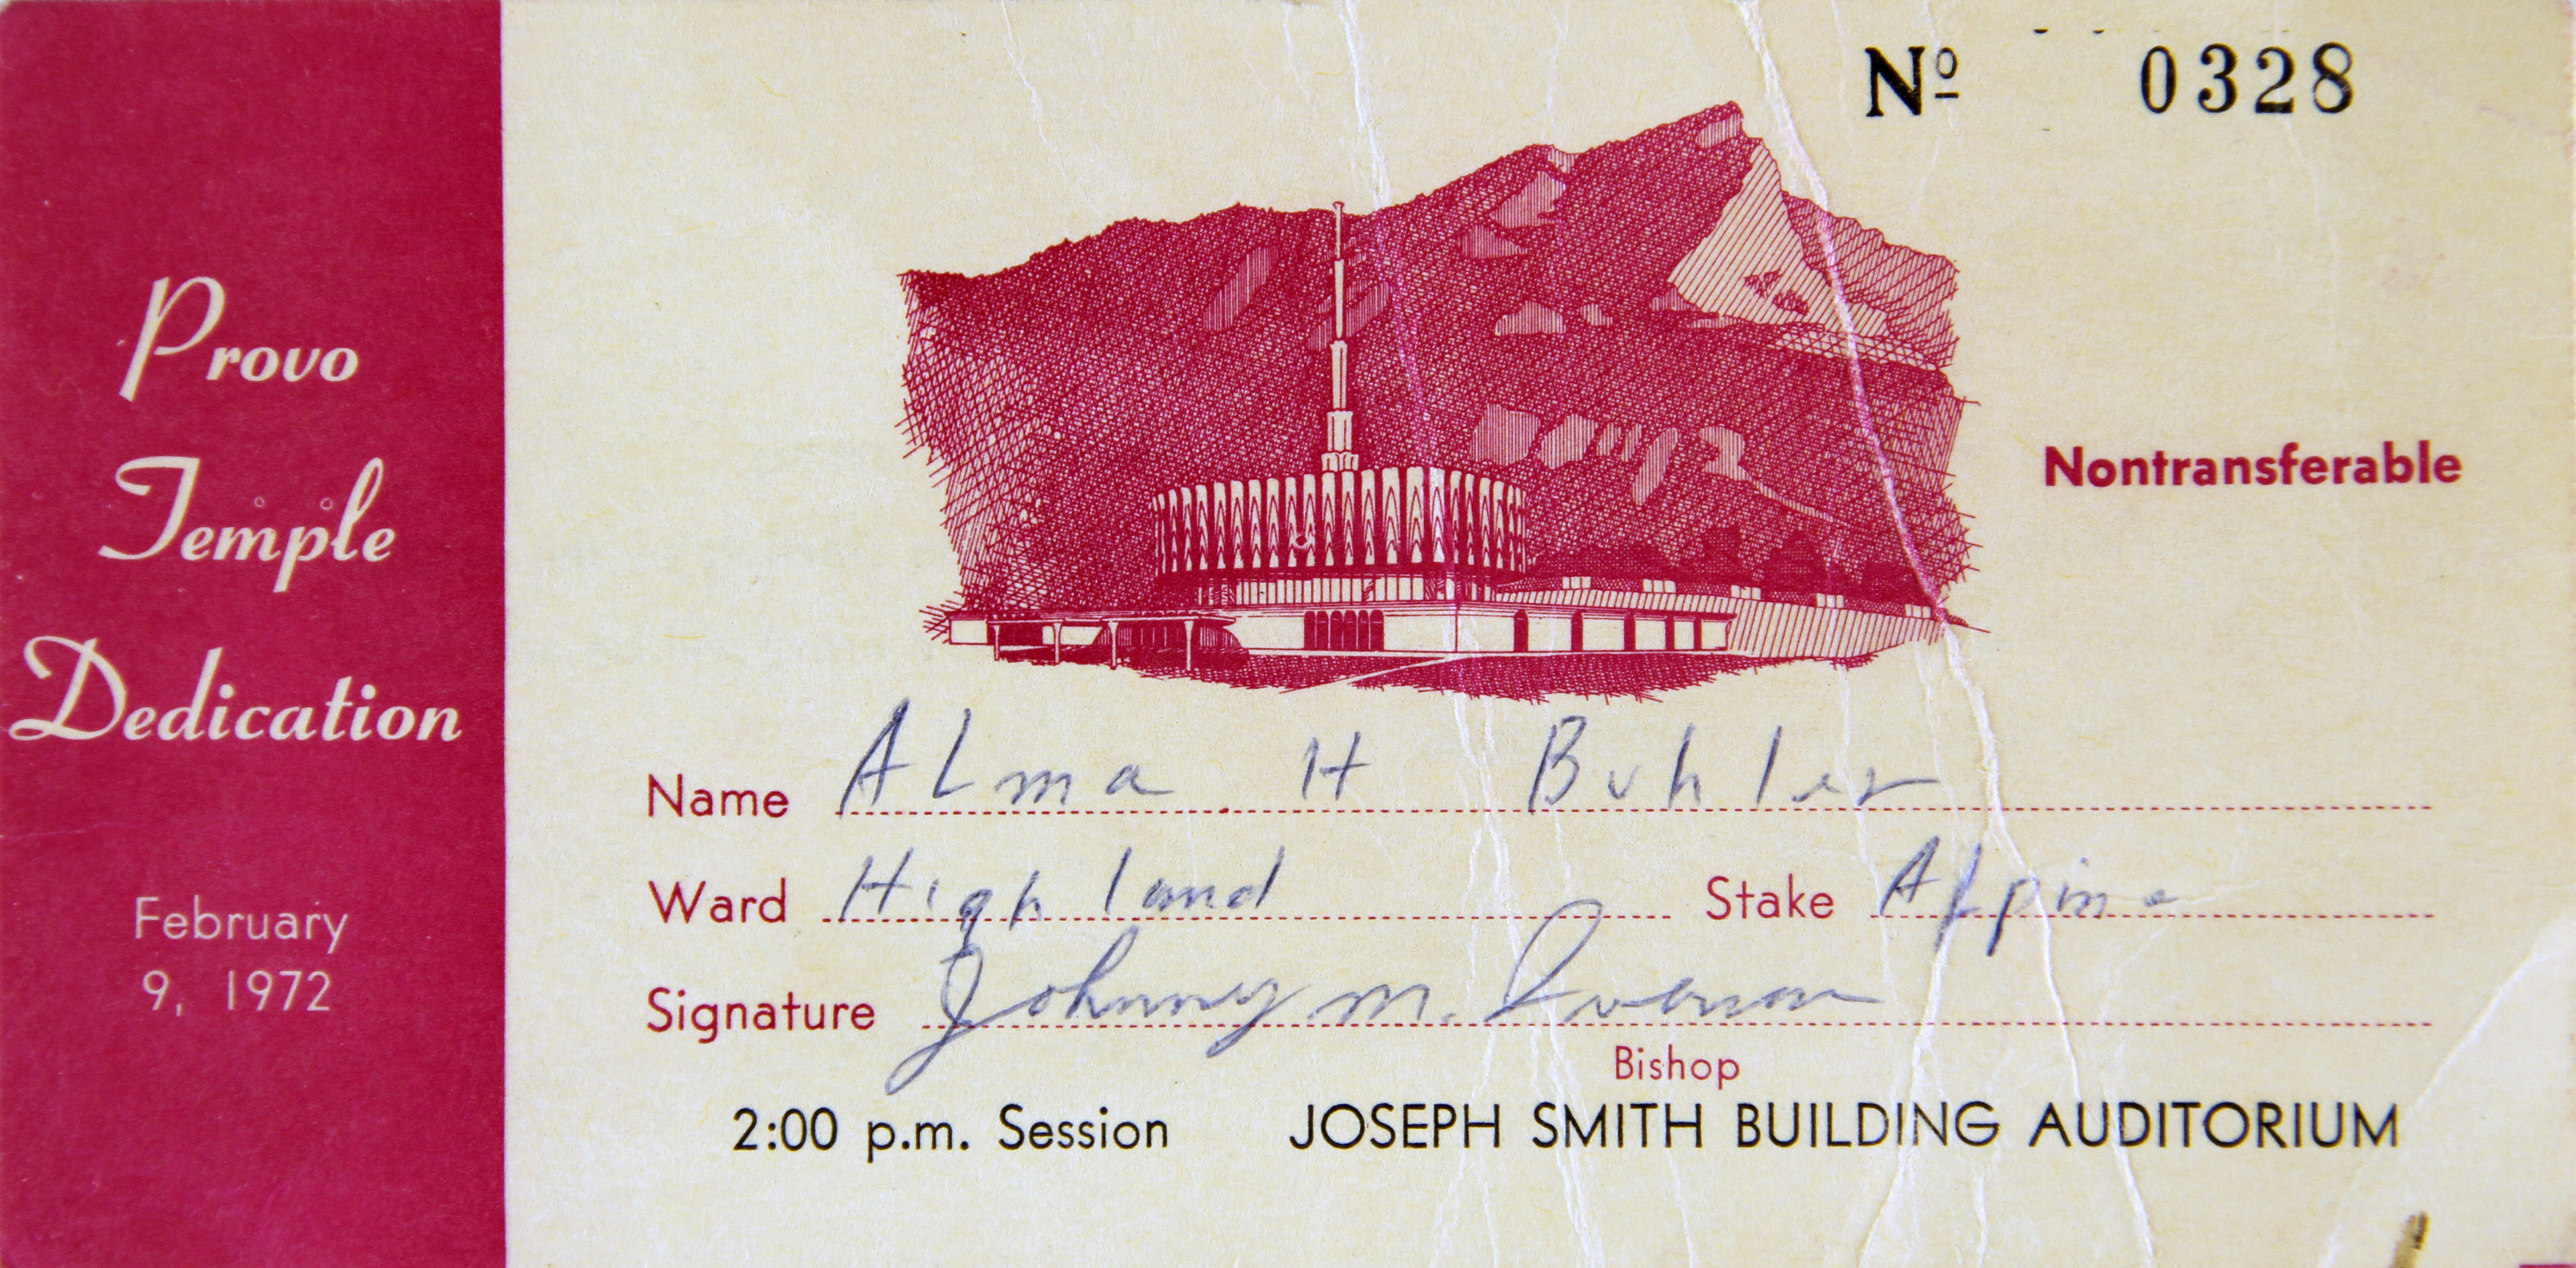 Provo
Temple
Dedication
February
9, 1972
Nº 0328
Nontransferable
Name ALma H Buhler
Ward Highland Stake ALpine
Signature Johnny M.
Bishop
2:00 p.m. Session JOSEPH SMITH BUILDING AUDITORIUM